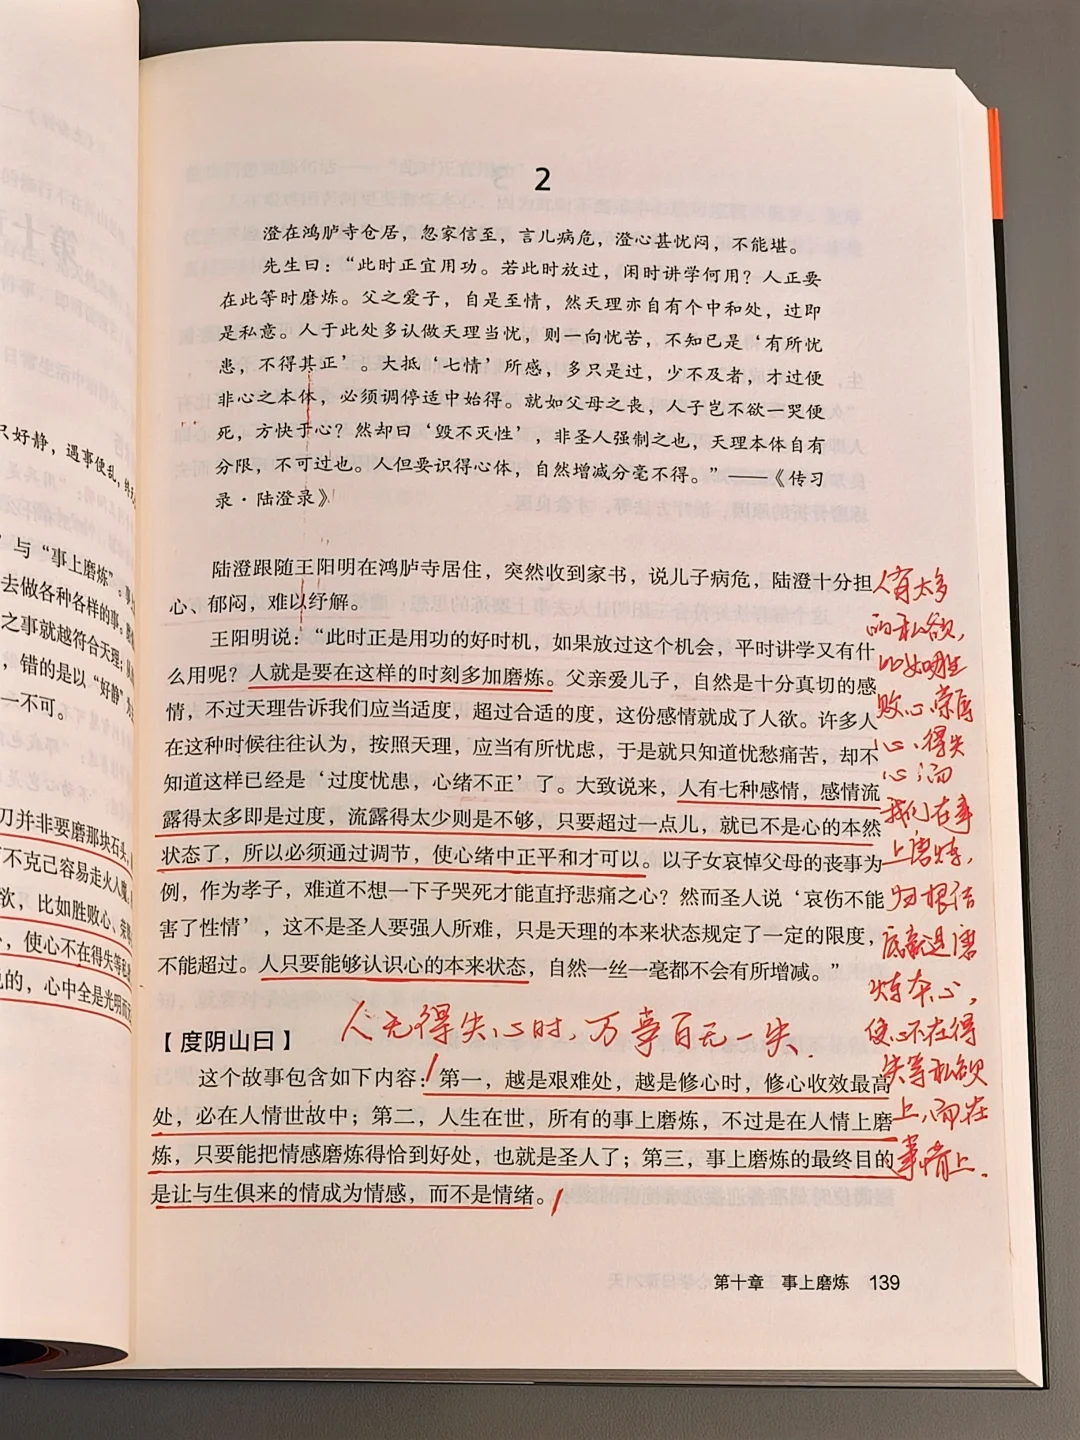 只好静，遇事便乱，终
”与“事上磨炼”。
去做各种各样的事。
之事就越符合天理；
，错的是以“好静”为
一不可。
刀并非要磨那块石头，
不克己容易走火入魔。
欲，比如胜败心、荣辱
，使心不在得失等私
说的，心中全是光明而
2
澄在鸿胪寺仓居，忽家信至，言儿病危，澄心甚忧闷，不能堪。
先生曰：“此时正宜用功。若此时放过，闲时讲学何用？人正要
在此等时磨炼。父之爱子，自是至情，然天理亦自有个中和处，过即
是私意。人于此处多认做天理当忧，则一向忧苦，不知已是‘有所忧
患，不得其正’。大抵‘七情’所感，多只是过，少不及者，才过便
非心之本体，必须调停适中始得。就如父母之丧，人子岂不欲一哭便
死，方快于心？然却曰‘毁不灭性’，非圣人强制之也，天理本体自有
分限，不可过也。人但要识得心体，自然增减分毫不得。”——《传习
录·陆澄录》
陆澄跟随王阳明在鸿胪寺居住，突然收到家书，说儿子病危，陆澄十分担
心、郁闷，难以纾解。
王阳明说：“此时正是用功的好时机，如果放过这个机会，平时讲学又有什
么用呢？人就是要在这样的时刻多加磨炼。父亲爱儿子，自然是十分真切的感
情，不过天理告诉我们应当适度，超过合适的度，这份感情就成了人欲。许多人
在这种时候往往认为，按照天理，应当有所忧虑，于是就只知道忧愁痛苦，却不
知道这样已经是‘过度忧患，心绪不正’了。大致说来，人有七种感情，感情流
露得太多即是过度，流露得太少则是不够，只要超过一点儿，就已不是心的本然
状态了，所以必须通过调节，使心绪中正平和才可以。以子女哀悼父母的丧事为
例，作为孝子，难道不想一下子哭死才能直抒悲痛之心？然而圣人说‘哀伤不能
害了性情’，这不是圣人要强人所难，只是天理的本来状态规定了一定的限度，
不能超过。人只要能够认识心的本来状态，自然一丝一毫都不会有所增减。”
人有太多
的私欲，
比如胜
败心、荣辱
心、得失
心；而
我们在事
上磨炼，
归根结
底就是磨
炼本心，
使心不在得
失等私欲
上，而在
事情上．
人无得失心时，万事百无一失．
【度阴山曰】
这个故事包含如下内容：第一，越是艰难处，越是修心时，修心收效最高
处，必在人情世故中；第二，人生在世，所有的事上磨炼，不过是在人情上磨
炼，只要能把情感磨炼得恰到好处，也就是圣人了；第三，事上磨炼的最终目的
是让与生俱来的情成为情感，而不是情绪。
第十章　事上磨炼　139